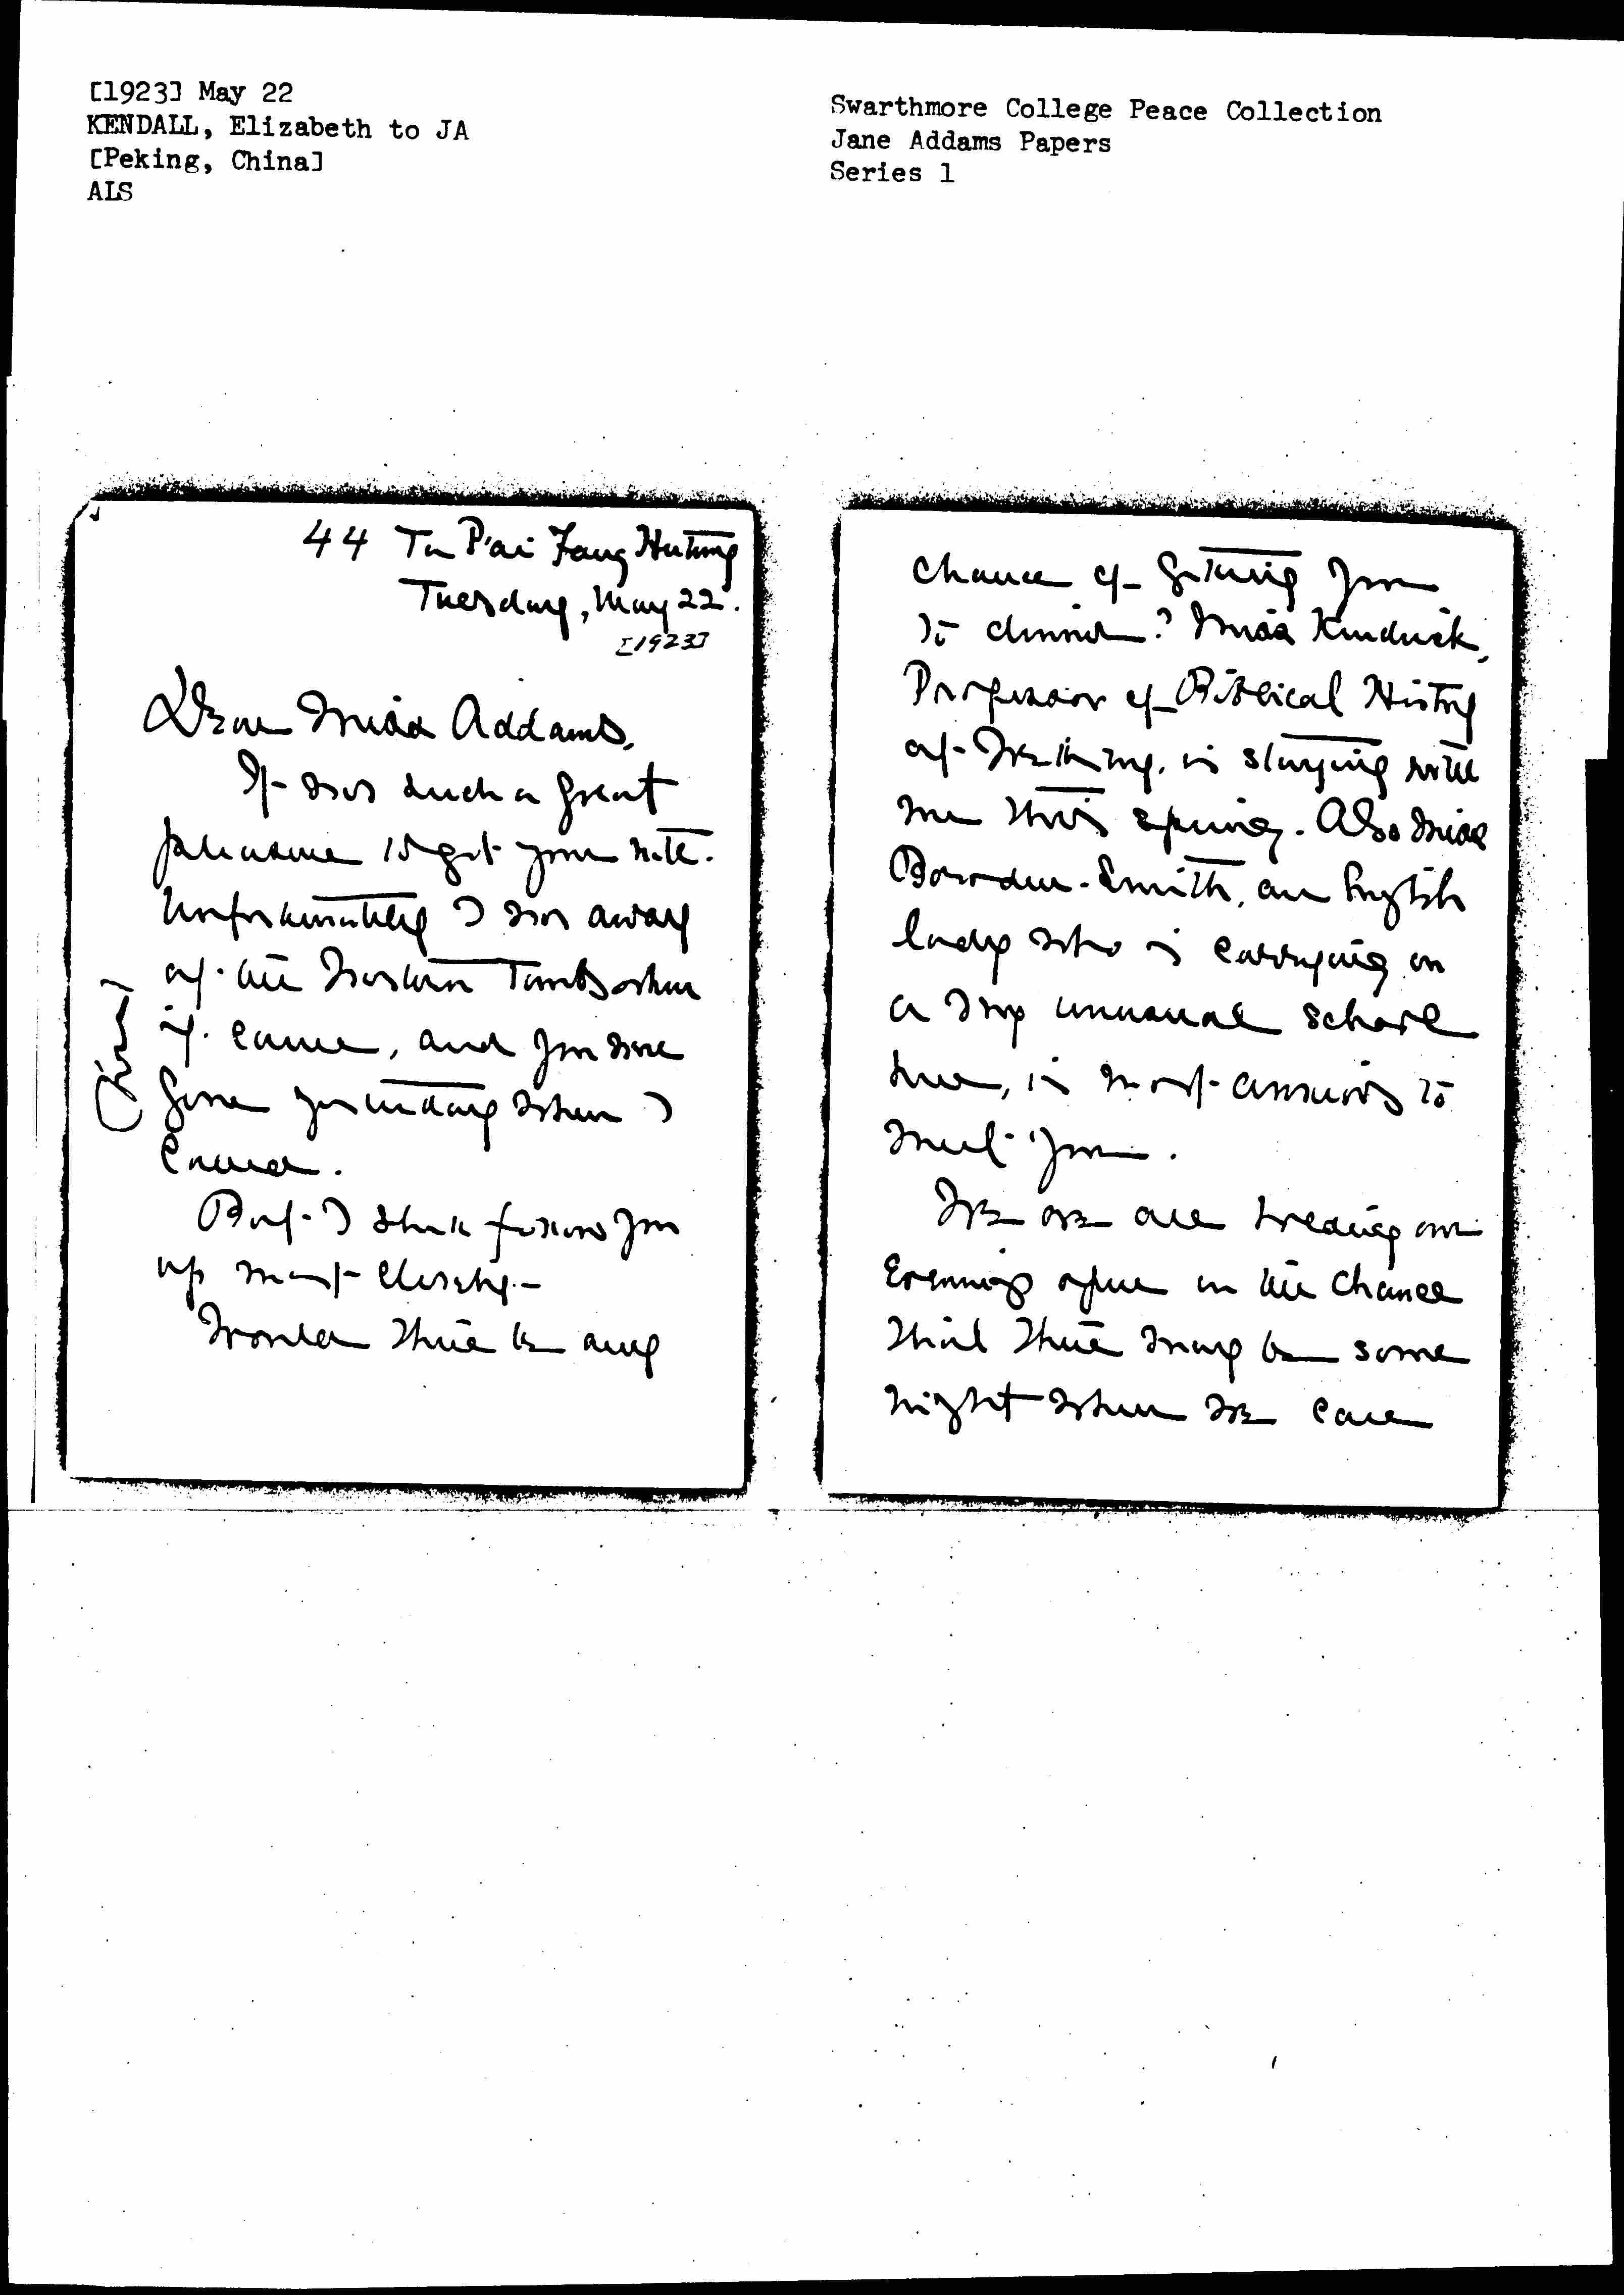 [1923] May 22
KENDALL, Elizabeth to JA
[Peking, China]
ALS
Swarthmore College Peace Collection
Jane Addams Papers
Series 1
44 Ta P'ai Fang Hutung
Tuesday, May 22.
[1923]
Dear Miss Addams,
It was such a great
pleasure to get your note.
Unfortunately I was away
at the Western Tombs when
it came, and you were
gone yesterday when I
called.
But I shall follow you
up most closely.-
Would there be any
chance of getting you
to dinner? Miss Kendrick,
Professor of Biblical History
at Wellesley, is staying with
me this spring. Also Miss
Bowden-Smith, an English
lady who is carrying on
a very unusual school
here, is most anxious to
meet you.
We are all keeping our
evenings open in the chance
that there may be some
night when we can